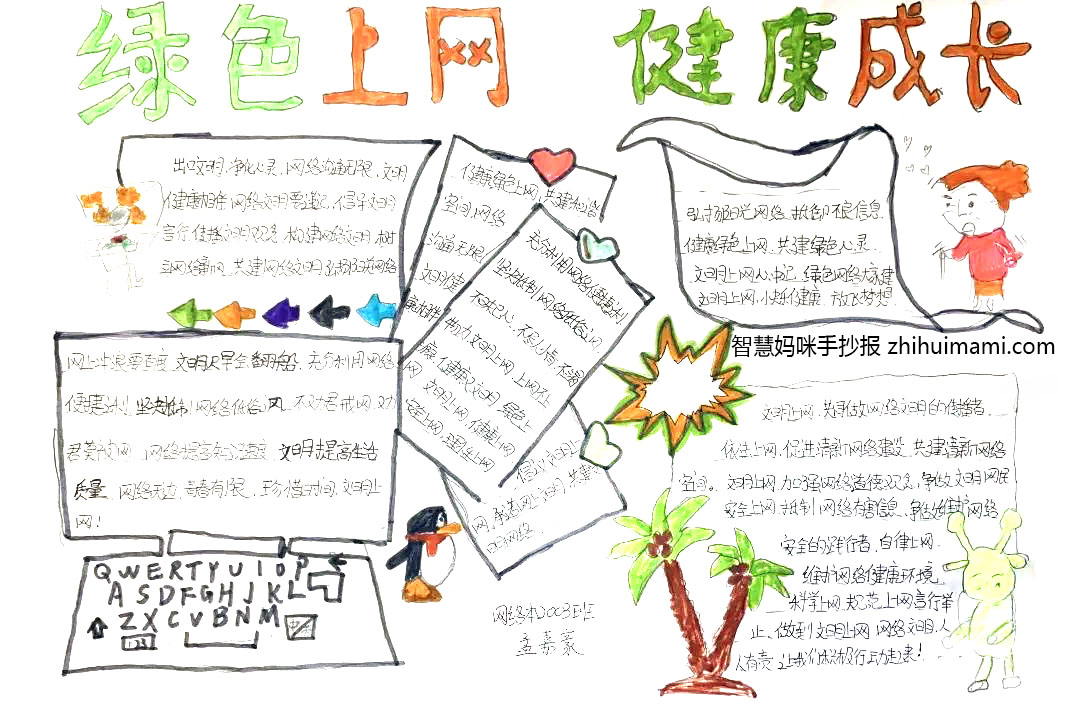 绿色上网 健康成长
出口文明,净化心灵,网络沟通无限,文明
健康相伴,网络文明要谨记,倡导文明
言行,传播文明观念,构建网络文明,树
立网络新风,共建网络文明,弘扬阳光网络
网上冲浪要百度,文明只早会翻船.充分利用网络
便捷达利,坚决抵制网络低俗风.不劝君戒网,劝
君莫被网,网络提高知识速度,文明才提高生活
质量.网络无边,青春有限,珍惜时间,文明上
网!
QWERTYUIOP
ASDFGHJKL
ZXCVBNM
123
健康绿色上网,共建和谐
空间,网络
沟通无限,
文明健
康相伴
充分利用网络便捷达利,
坚决抵制网络低俗风
倡议文明上
网络本2003班
孟嘉豪
弘扬阳光网络,抵御不良信息.
健康绿色上网,共建绿色心灵.
文明上网心中记,绿色网络享健
文明上网,小娱健康 放飞梦想.
智慧妈咪手抄报 zhihuimami.com
文明上网,争做网络文明的传播者.
依法上网,促进清新网络建设,共建清新网络
空间. 文明上网,加强网络道德观念,争做文明网民
安全上网,抵制网络有害信息,争做维护网络
安全的践行者,自律上网.
维护网络健康环境
科学上网,规范上网言行举
止、做到文明上网,网络文明,人
人有责,让我们积极行动起来!